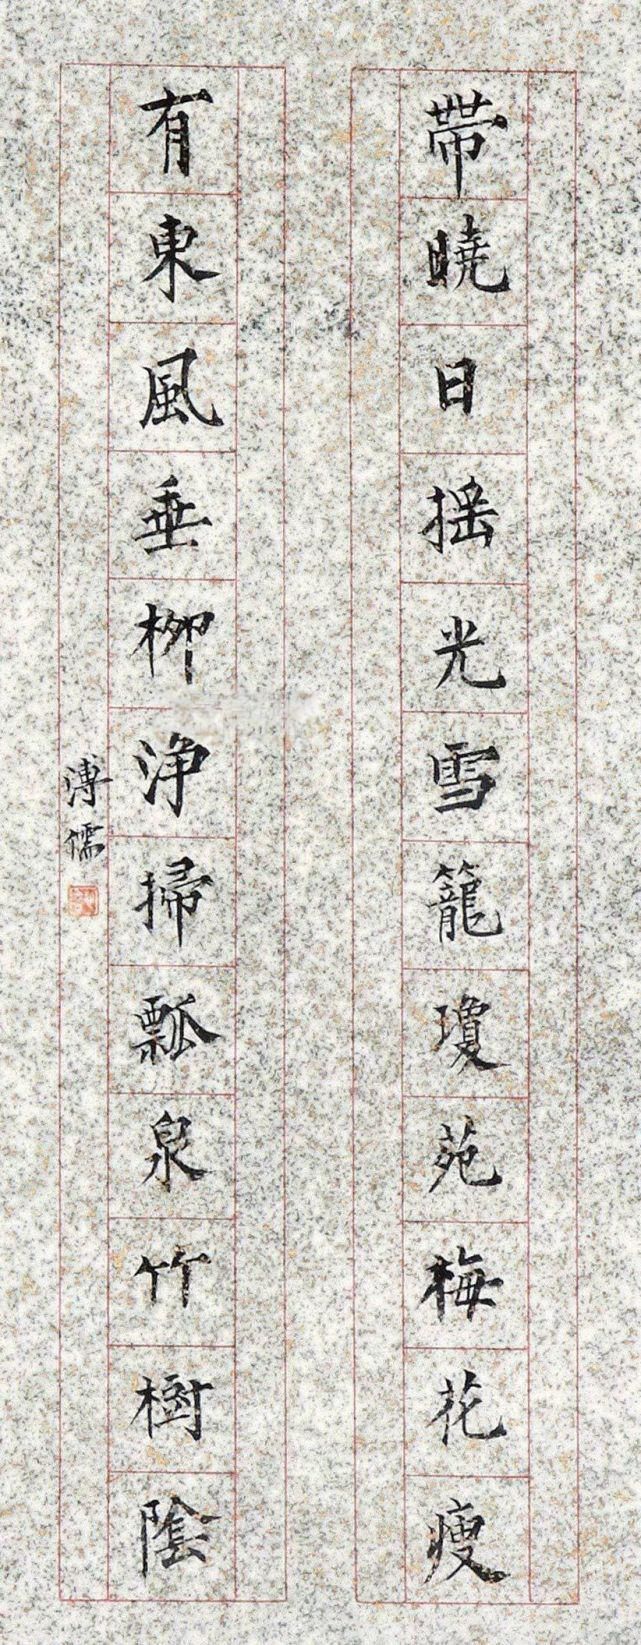 帶曉日摇光雪籠瓊苑梅花瘦
有東風垂柳浄掃瓢泉竹樹陰
溥儒